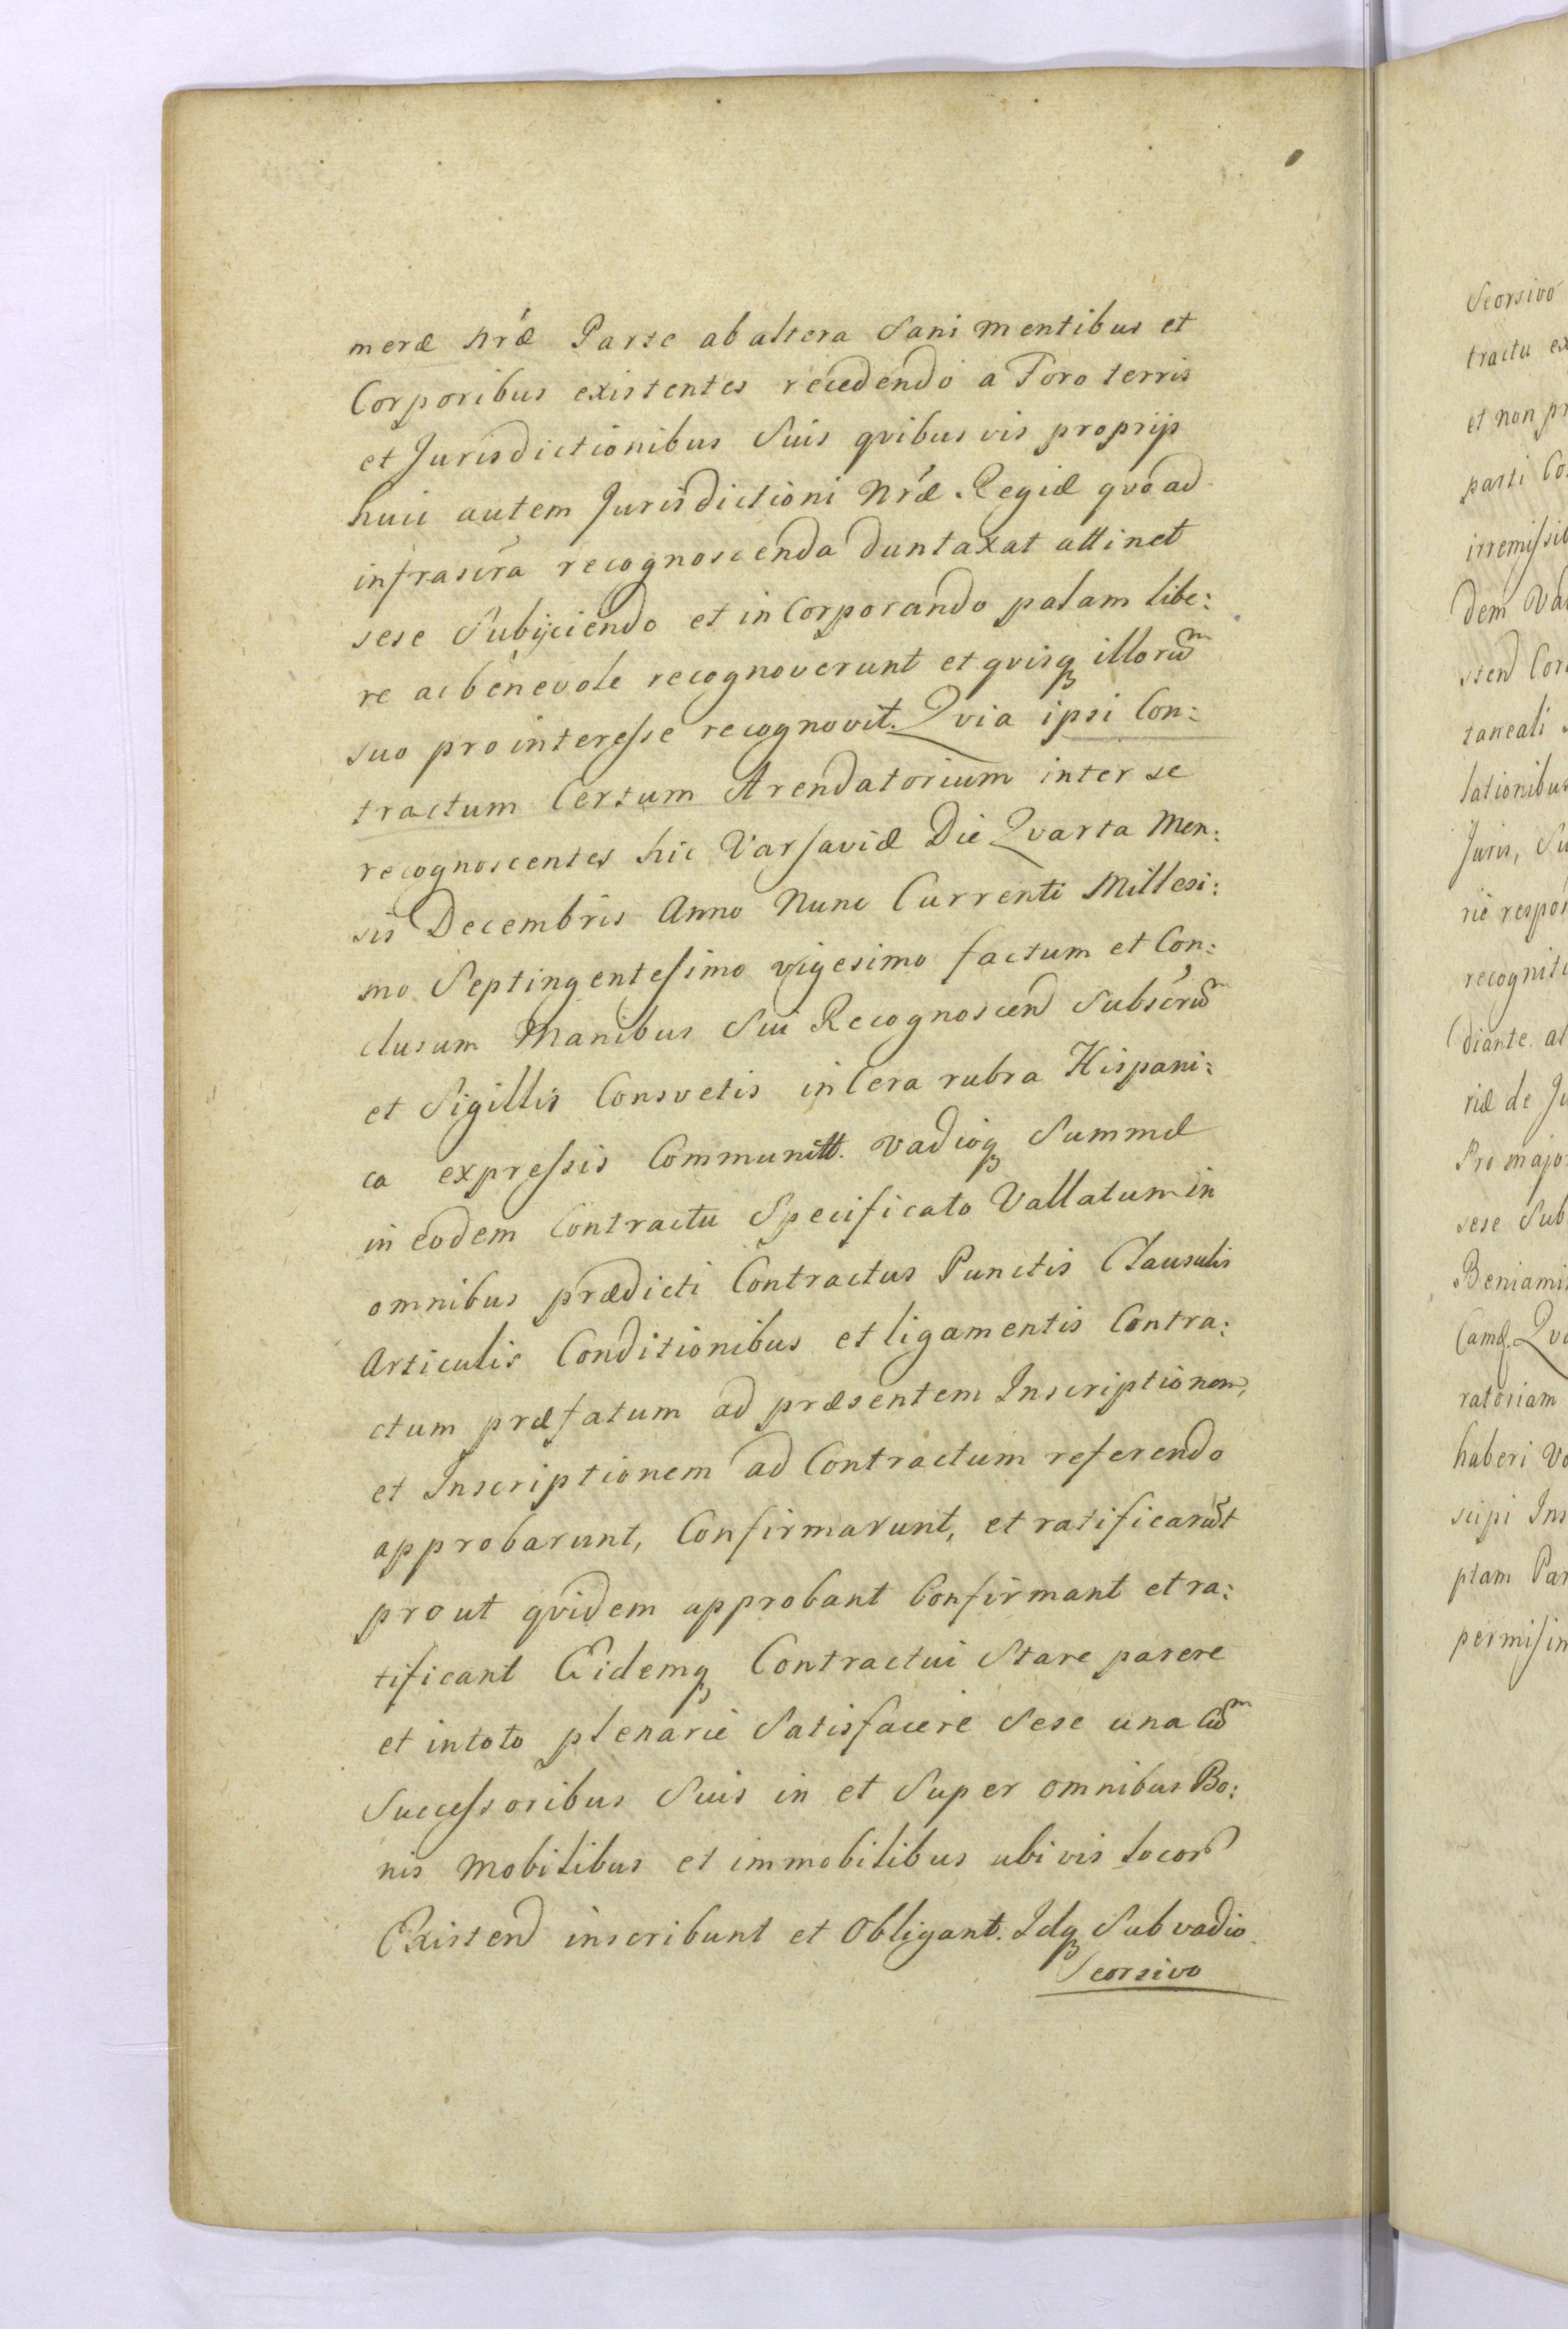 meræ nr̃æ Parte ab altera Sani mentibus et
Corporibus existentes recedendo a Foro terris
et Jurisdictionibus Suis qvibus vis proprijs
huic autem Jurisdictioni Nr̃æ Regiæ qvo ad
infrascr̃a recognoscenda duntaxat attinet
sese Subijciendo et incorporando palam libe:
re ac benevole recognoverunt et qvisq₃ illorũm
suo pro interesse recognovit. Qvia ipsi Con:
tractum Certum Arendatorium inter se
recognoscentes hic Varsaviæ Die Qvarta Men:
sis Decembris Anno Nunc Currenti Millesi:
mo Septingentesimo vigesimo factum et Con:
clusum Manibus Sui Recognoscend Subscrũm
et Sigillis Consvetis in Cera rubra Hispani:
ca expressis Communitt. vadioq₃ Summæ
in eodem Contractu Specificato Vallatum in
omnibus prædicti Contractus Punctis Clausulis
Articulis Conditionibus et ligamentis Contra:
ctum præfatum ad præsentem Inscriptionem,
et Inscriptionem ad Contractum referendo
approbarunt, Confirmarunt, et ratificarũt
prout qvidem approbant Confirmant et ra:
tificant Eidemq₃ Contractui Stare parere
et in toto plenarie Satisfacere Sese una cũm
Successoribus Suis in et Super omnibus Bo:
nis Mobilibus et immobilibus ubi vis locor̃
Existend inscribunt et Obligant. Idq₃ Sub vadio
Seorsivo
Seorsivo
tractu ex
et non pr
parti Co
irremissib
dem Va
stend Cor
taneali
lationibus
Juris, Su
rie respon
recognit
diante. al
riæ de Ju
Pro major
sese Sub
Beniami
Camq. Qv
ratoriam
haberi Vo
scipi Ins
ptam Par
permisin